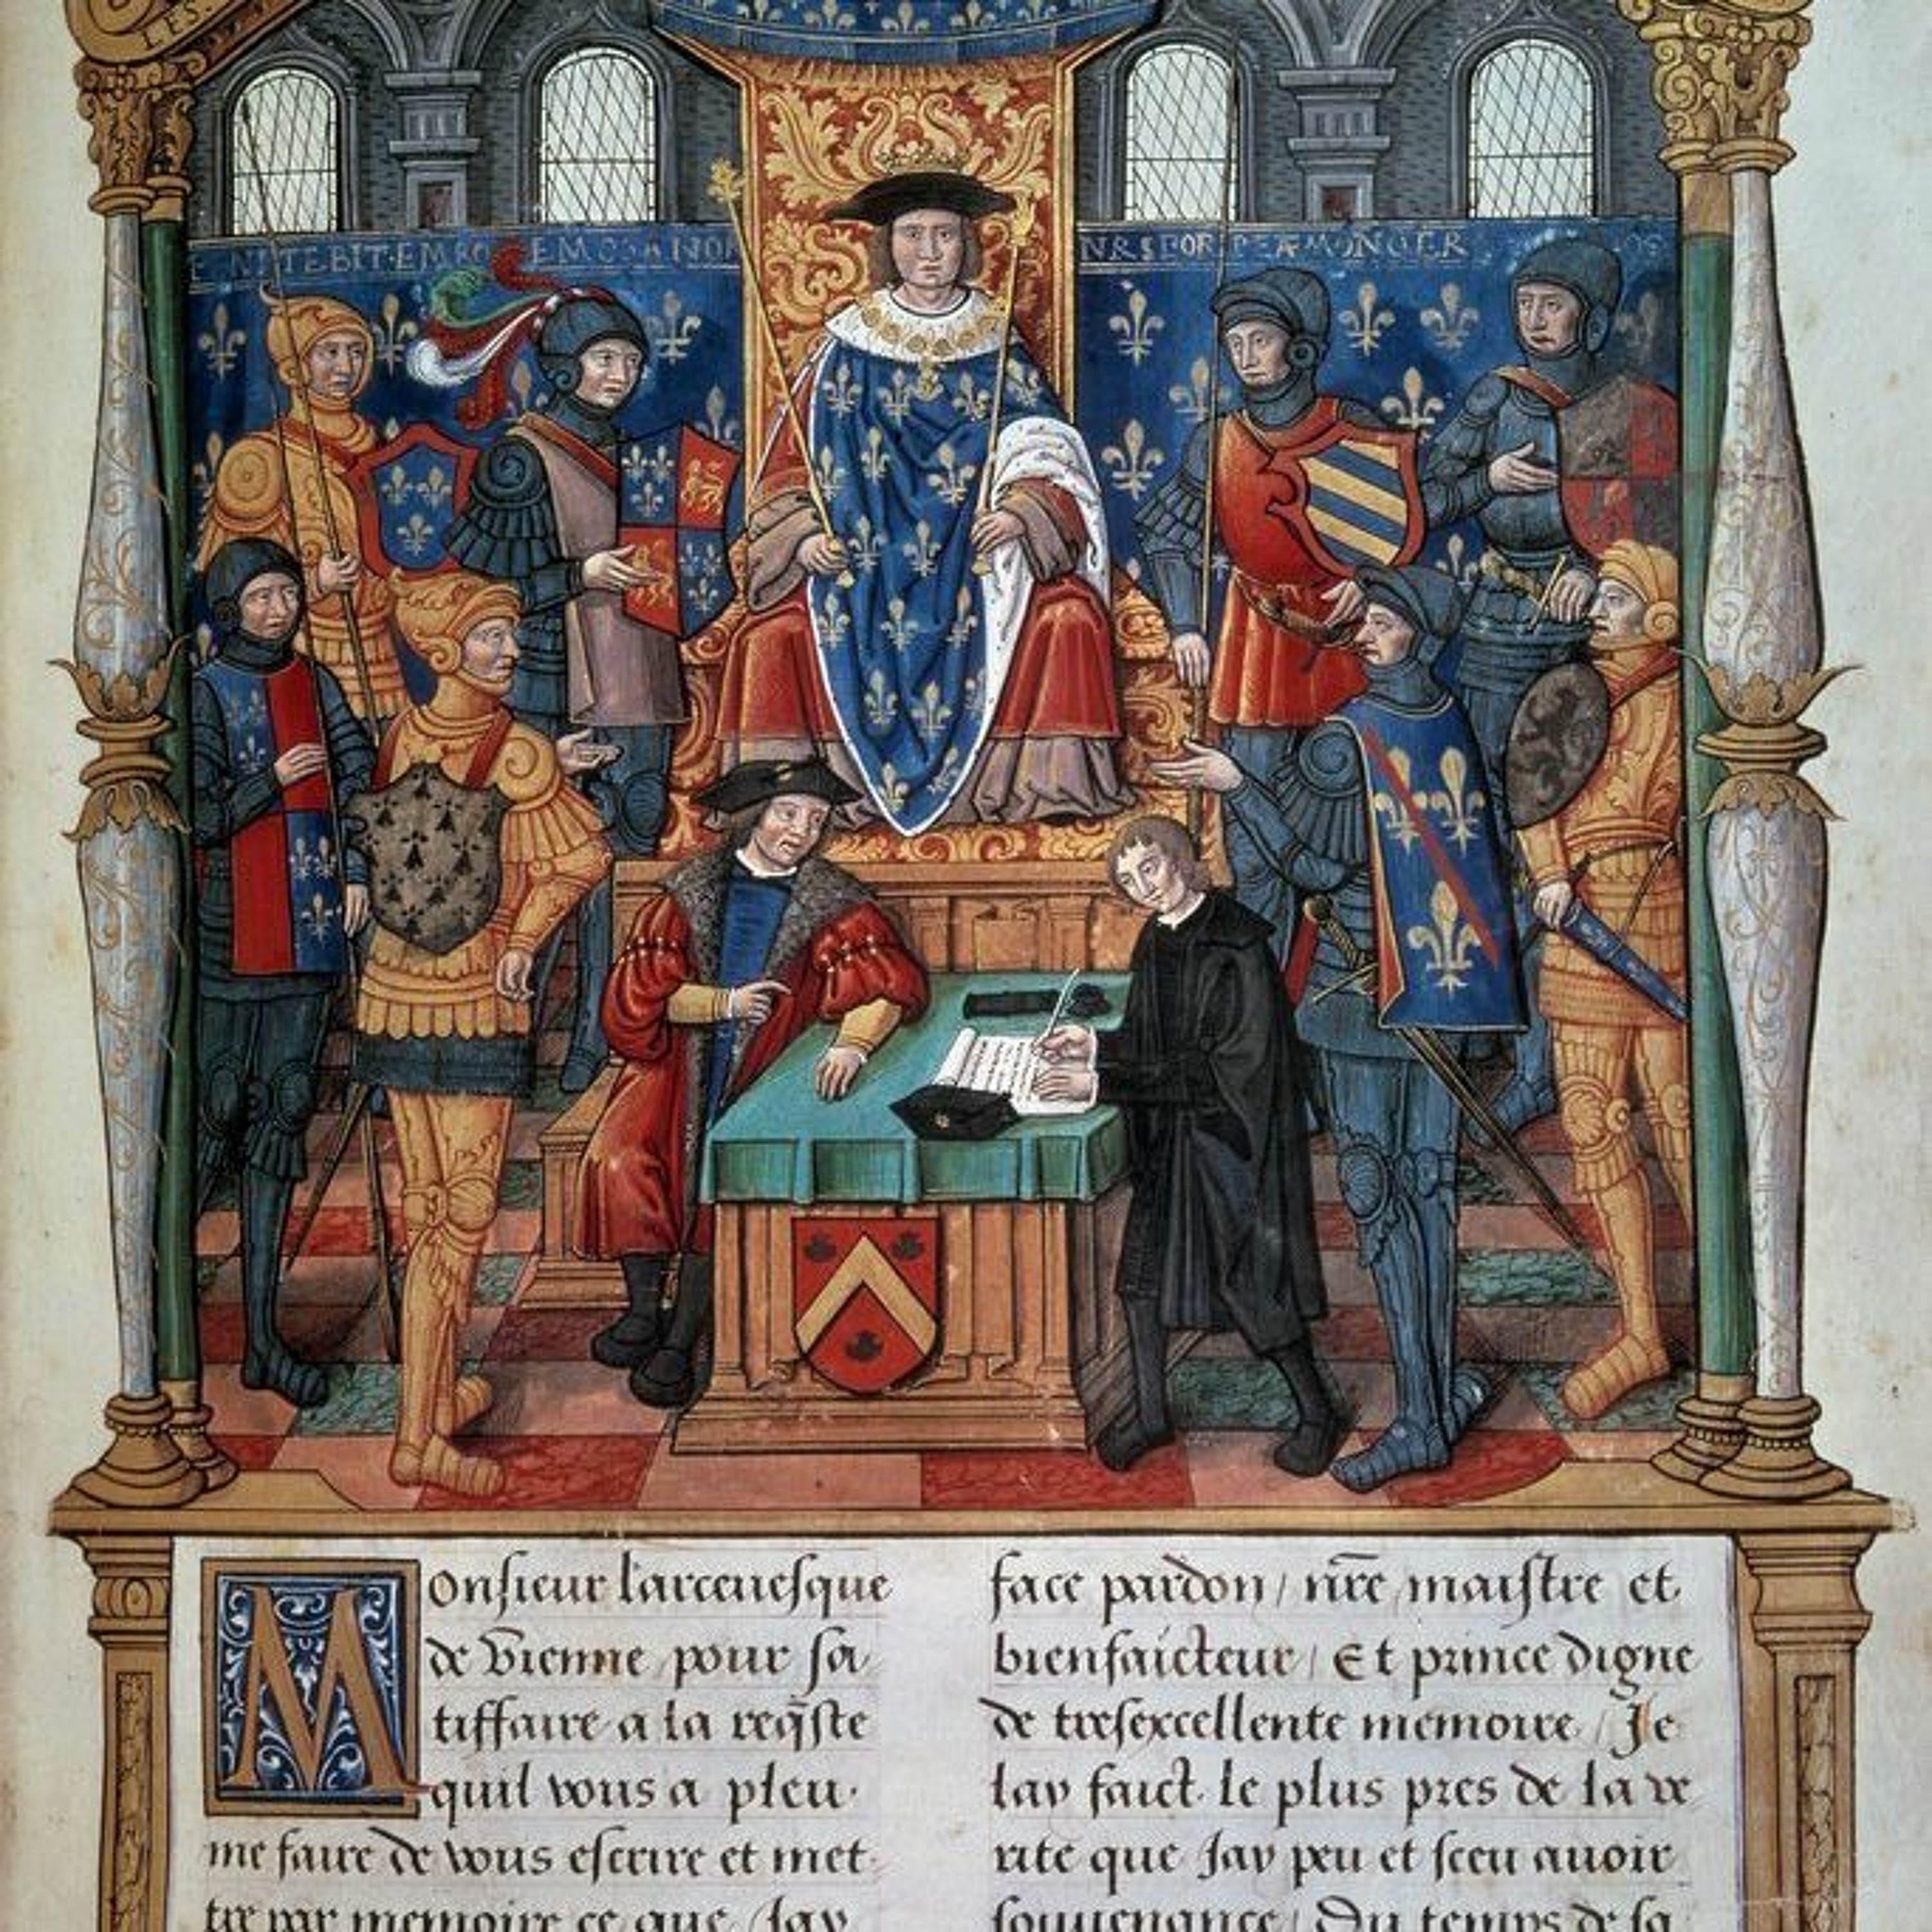 LES
Monsieur l'arcevesque
de Vienne pour sa
tiffaire a la reqste
quil vous a pleu
me faire de vous escrire et met
tre par memoire ce que Jay
face pardon / nre maistre et
bienfaicteur / Et prince digne
de tresexcellente memoire / Je
lay faict le plus pres de la ve
rite que Jay peu et sceu avoir
souvenance / Du temps de sa